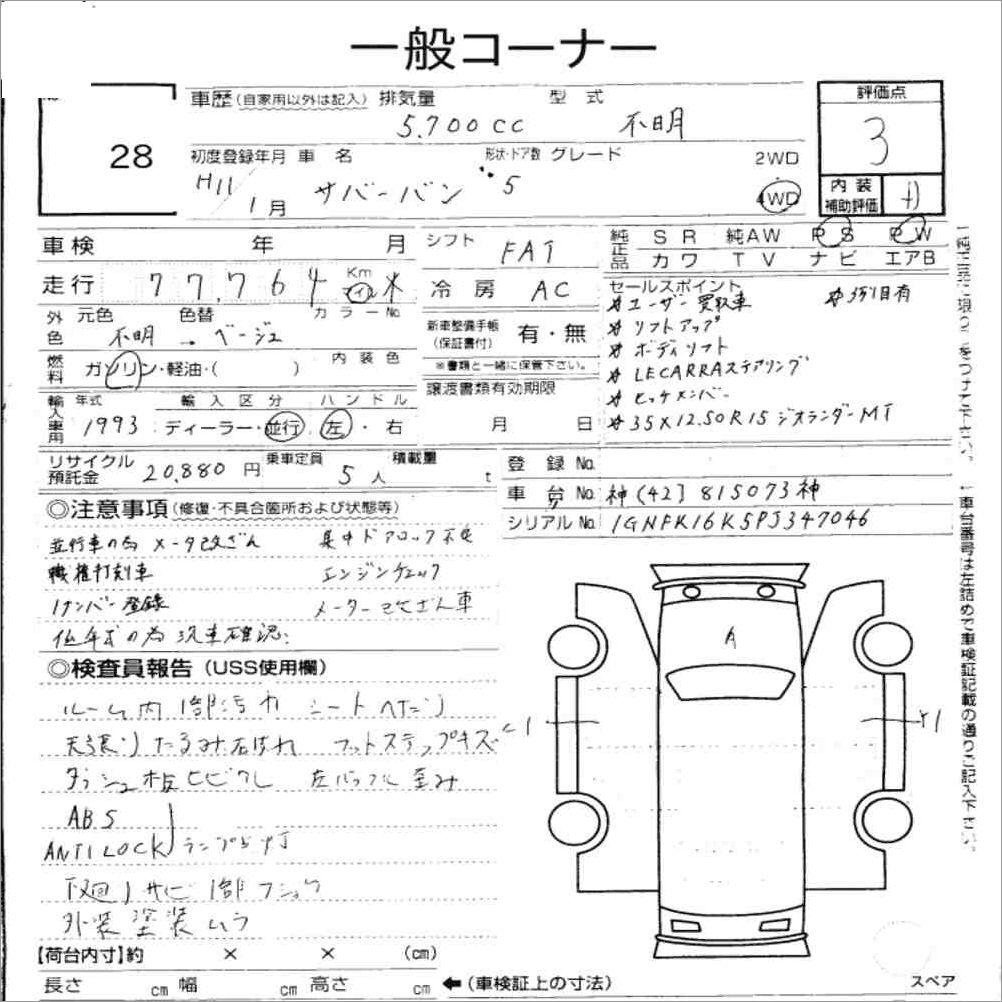 一般コーナー
28
車歴(自家用以外は記入) 排気量 型式
5.700cc 不明
評価点
3
初度登録年月 車名 形状・ドア数 グレード 2WD
H11 1月 サバーバン 5 4WD
内装
補助評価
車検 年 月
シフト FAT
純正品 SR 純AW PS PW
カワ TV ナビ エアB
走行 77,764 Km マイル ※
冷房 AC
セールスポイント
※ユーザー買取車 ※3列目有
※リフトアップ
※ボディリフト
※LECARRAステアリング
※ヒッチメンバー
※35×12.50R15 ジオランダーMT
外色 元色 色替 カラーNo.
不明 → ベージュ
新車整備手帳
(保証書付) 有・無
※書類と一緒に保管下さい。
燃料 ガソリン・軽油・( ) 内装色
譲渡書類有効期限
月 日
輸入車用 年式 輸入区分 ハンドル
1993 ディーラー・並行 左・右
リサイクル
預託金 20,880円 乗車定員 5人 積載量 t
登録No.
車台No. 神(42)815073神
シリアルNo. 1GNFK16K5PJ347046
◎注意事項(修復・不具合箇所および状態等)
並行車の為 メータ改ざん 集中ドアロック不良
職権打刻車 エンジンチェック
1ナンバー登録 メーター改ざん車
低年式の為現車確認.
◎検査員報告(USS使用欄)
ルーム内1部汚れ シートヘタリ
天張りたるみ フットステップキズ
ダッシュ板ヒビワレ 左バックドル歪み
ABS
ANTILOCK ランプ点灯
下廻りサビ 1部フショク
外装塗装ムラ
A
【荷台内寸】約 × × (cm)
長さ cm 幅 cm 高さ cm ←(車検証上の寸法)
スペア
車台番号は左詰めで車検証記載の通りご記入下さい。